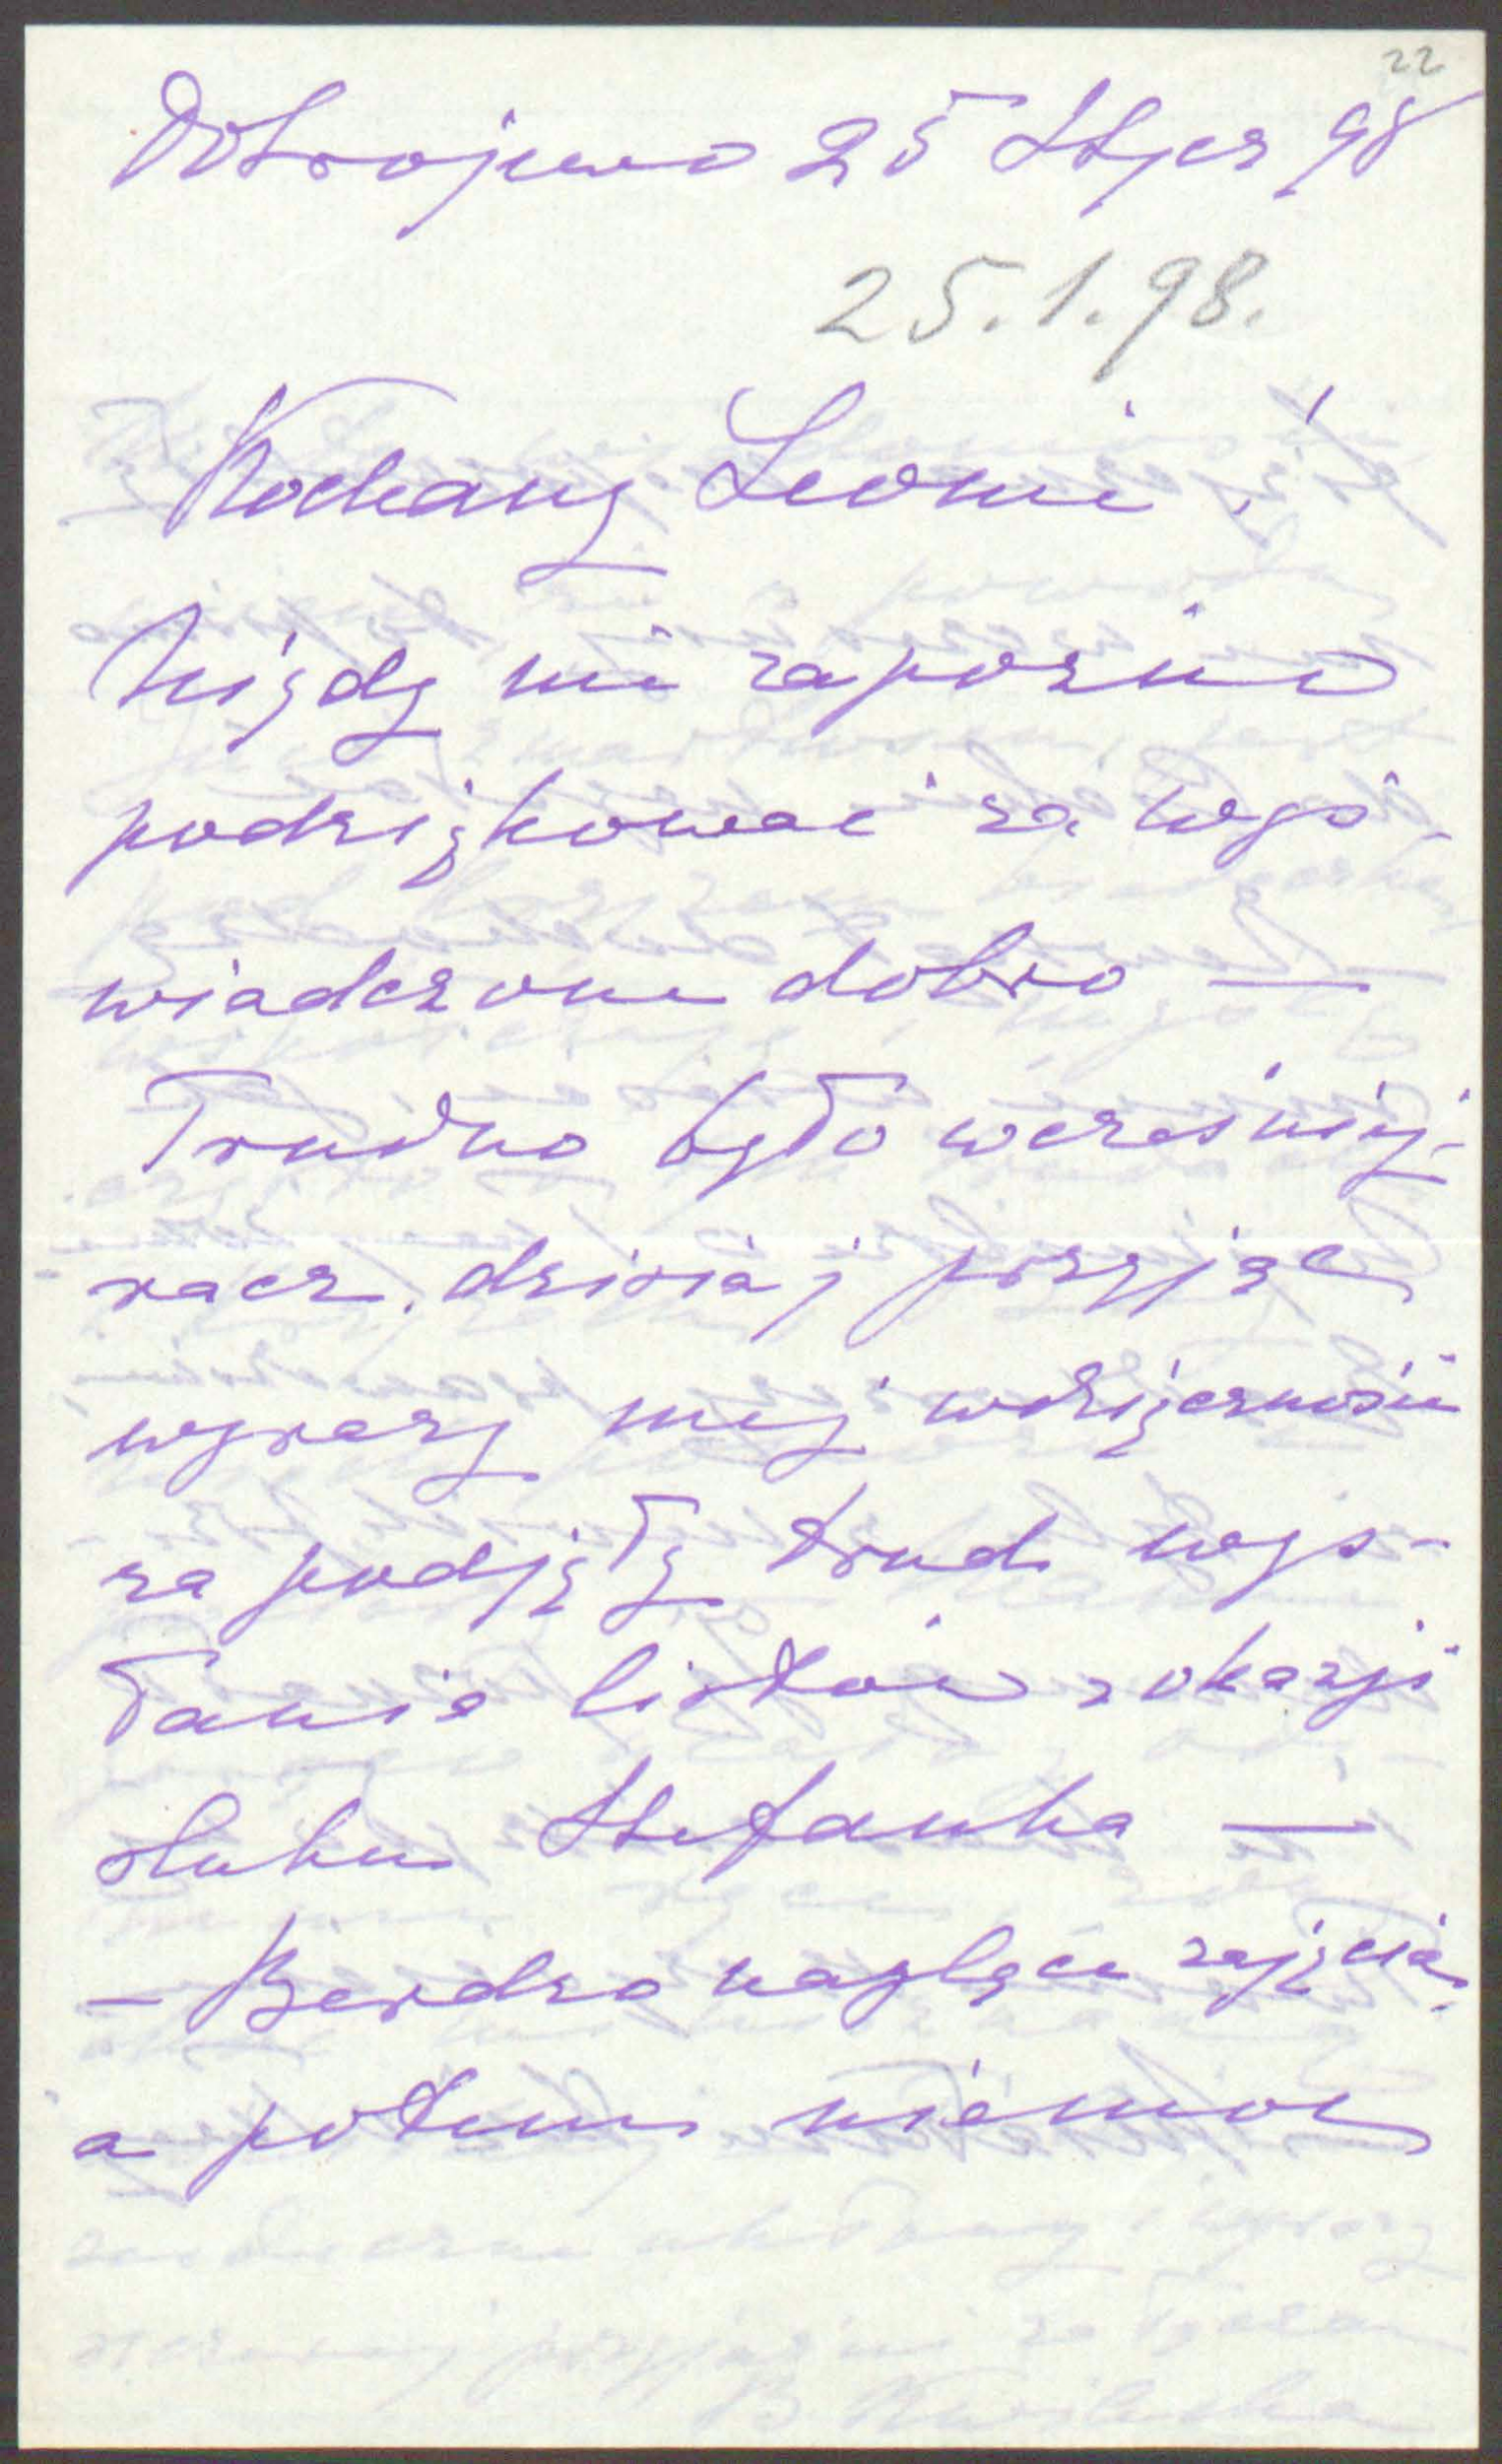 22
Dobrojewo 25 Stycz 98
25.1.98.
Kochany Leonie!
Nigdy nie zapóżno
podziękować za wyś-
wiadczone dobro —
Trudno było wcześniej-
racz dzisiaj przyjąć
wyrazy mej wdzięczności
za podjęty trud wys-
łania listów z okazji
ślubu Stefanka —
— Bardzo naglące zajęcia,
a potem niemoc